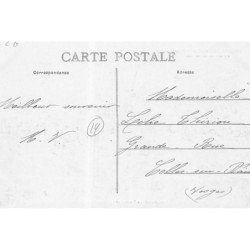 CARTE POSTALE
Correspondance
Adresse
Meilleur souvenir
M. V.
14
Mademoiselle
Thirion
Grande Rue
(Vosges)